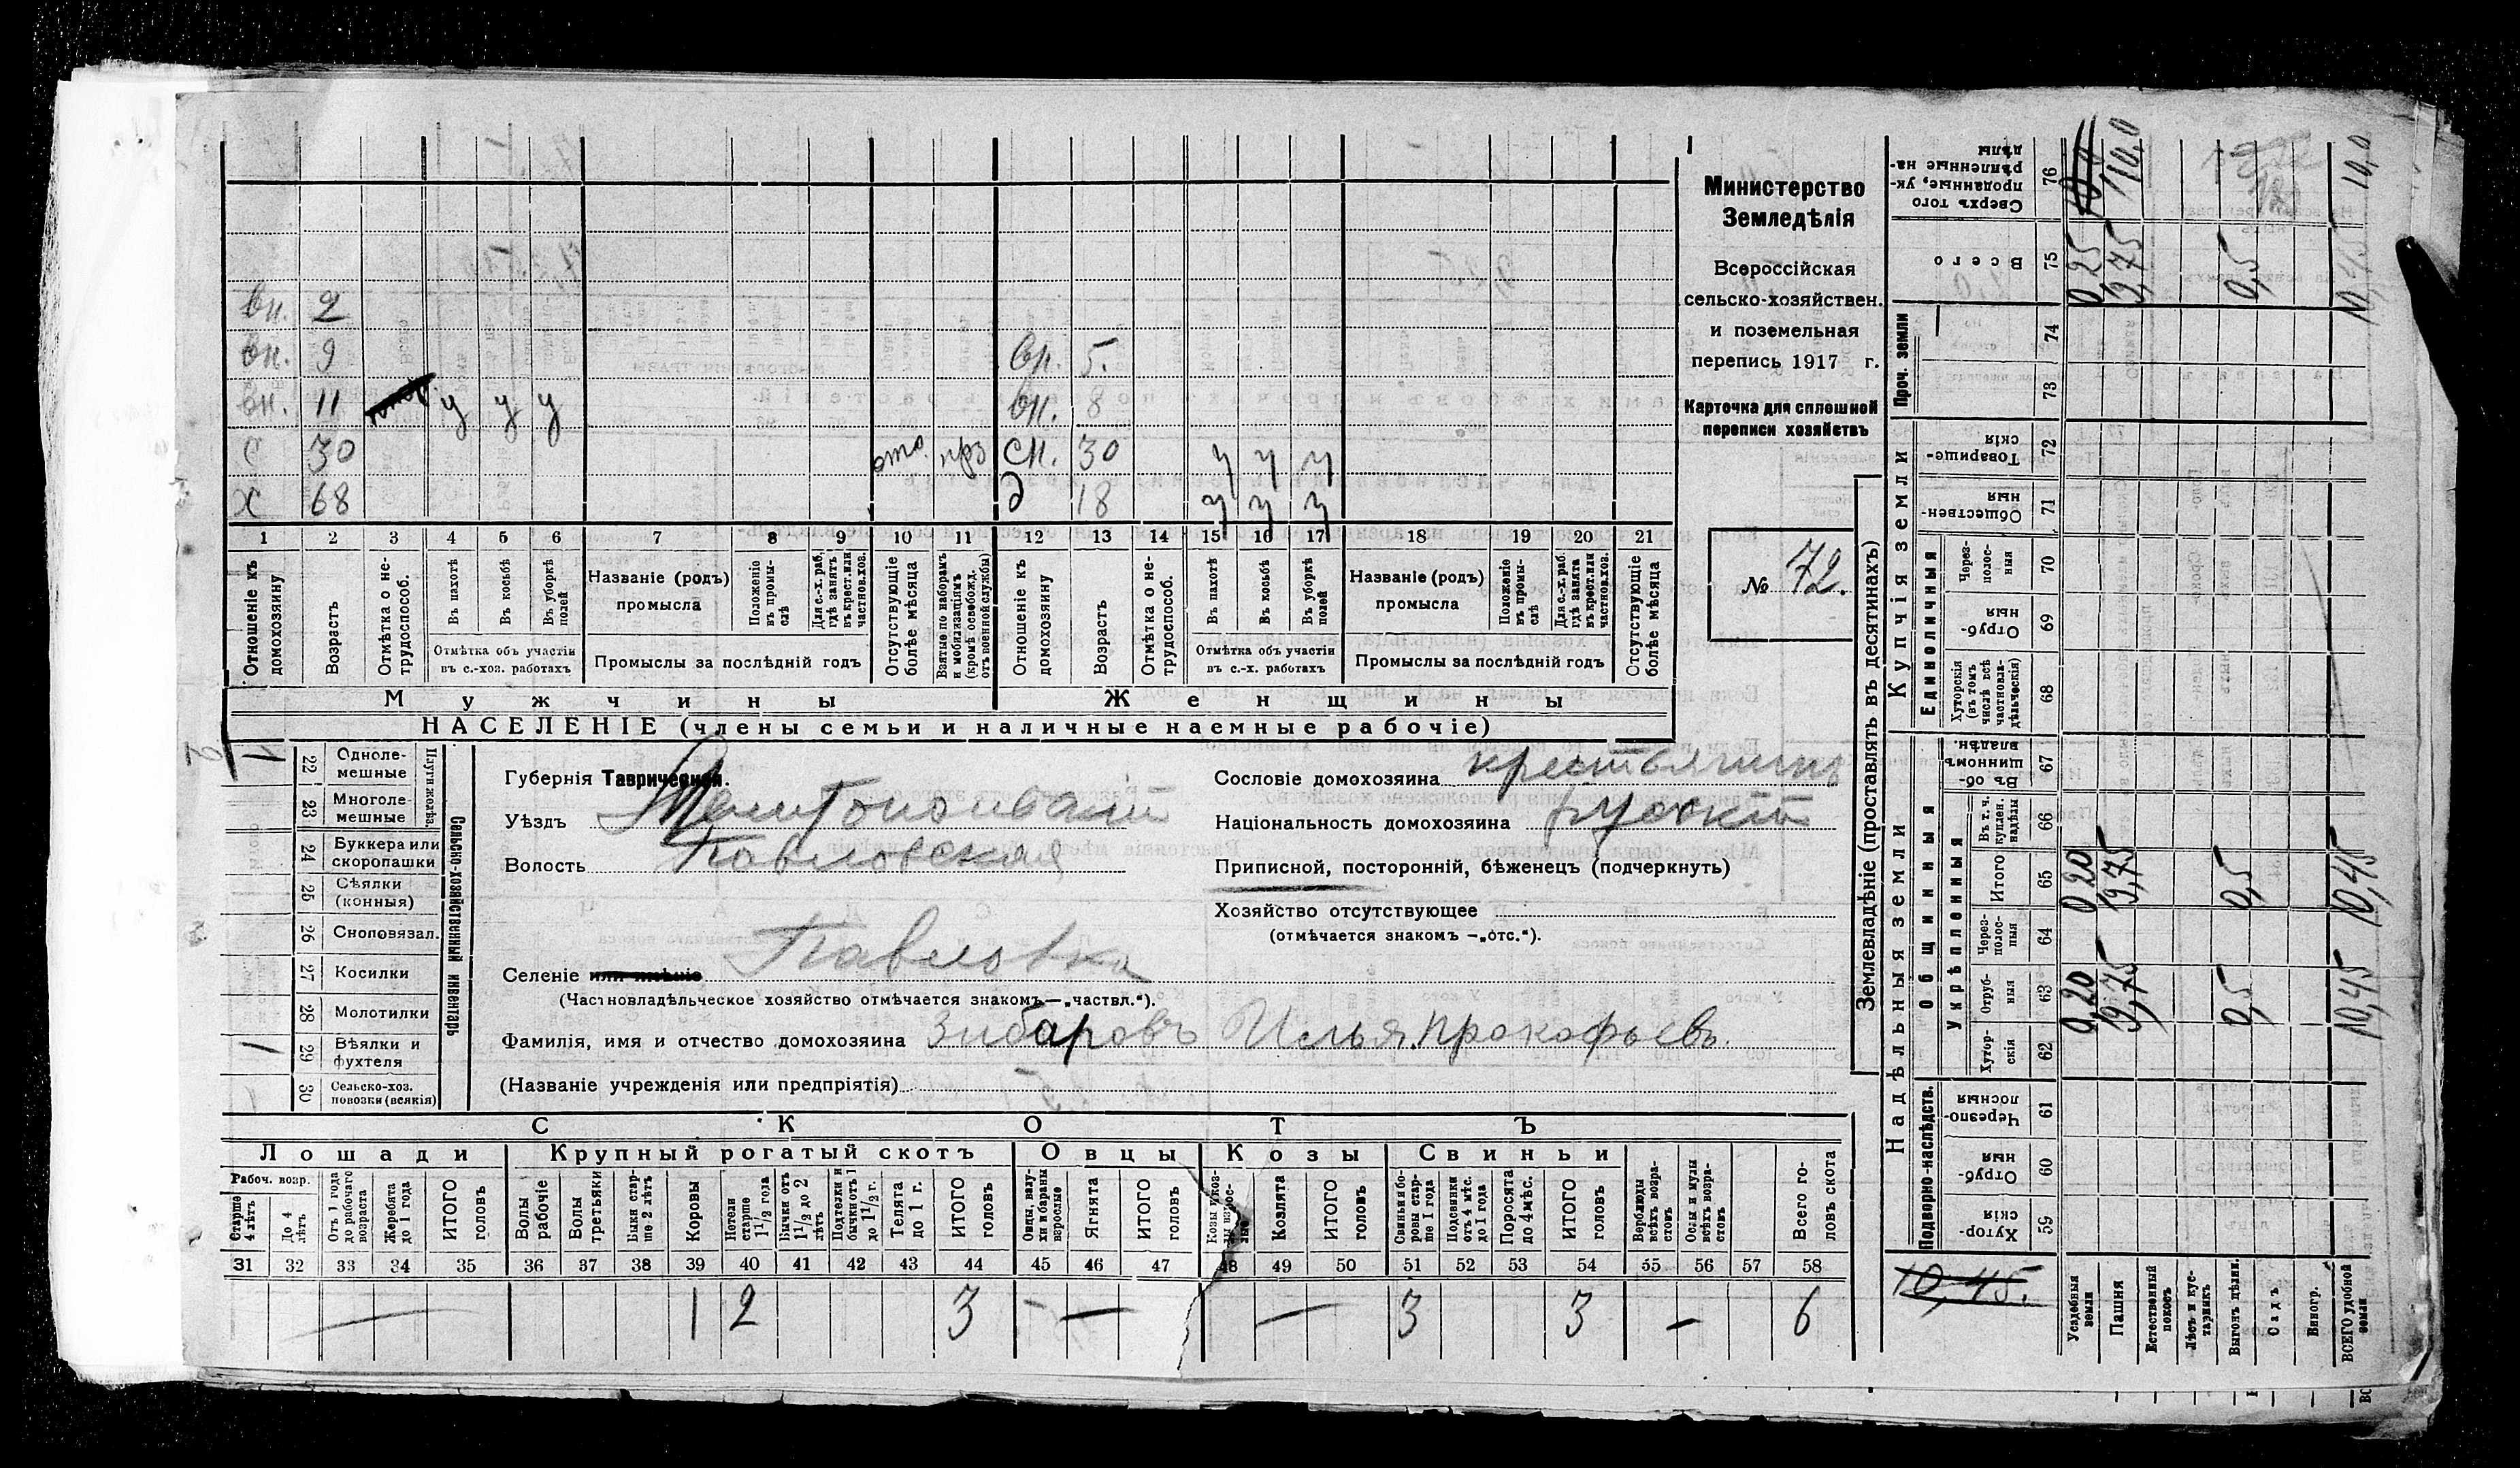 вн. 2
вн. 9 вн. 5.
вн. 11 у у у вн. 8
с 30 отс. прз сн. 30 у у у
х 68 д 18 у у у
1 2 3 4 5 6 7 8 9 10 11 12 13 14 15 16 17 18 19 20 21
Отношеніе къ домохозяину
Возрастъ
Отмѣтка о не-трудоспособ.
Въ пахотѣ
Въ косьбѣ
Въ уборкѣ полей
Отмѣтка объ участіи
въ с.-хоз. работахъ
Названіе (родъ)
промысла
Положеніе въ промы-слѣ
Для с.-х. раб. гдѣ занятъ въ крест. или частновл. хоз.
Промыслы за послѣдній годъ
Отсутствующіе болѣе мѣсяца
Взятые по наборамъ и мобилизаціямъ (кромѣ освобожд. отъ военной службы)
Отношеніе къ домохозяину
Возрастъ
Отмѣтка о не-трудоспособ.
Въ пахотѣ
Въ косьбѣ
Въ уборкѣ полей
Отмѣтка объ участіи
въ с.-х. работахъ
Названіе (родъ)
промысла
Положеніе въ промы-слѣ
Для с.-х. раб. гдѣ занята въ крест. или частновл. хоз.
Промыслы за послѣдній годъ
Отсутствующіе болѣе мѣсяца
Мужчины Женщины
НАСЕЛЕНІЕ (члены семьи и наличные наемные рабочіе)
Министерство
Земледѣлія
Всероссійская
сельско-хозяйствен.
и поземельная
перепись 1917 г.
Карточка для сплошной
переписи хозяйствъ
№ 72.
Сельско-хозяйственный инвентарь
22 Однолемешные 1
23 Многолемешные
24 Буккера или скоропашки
25 Сѣялки (конныя)
26 Сноповязал.
27 Косилки
28 Молотилки
29 Вѣялки и фухтеля 1
30 Сельско-хоз. повозки (всякія)
Губернія Таврическая.
Уѣздъ Мелитопольскій
Волость Павловская
Селеніе или имѣніе Павловка
(Частновладѣльческое хозяйство отмѣчается знакомъ—„частвл.“).
Фамилія, имя и отчество домохозяина Зибаровъ Илья Прокофьевъ.
(Названіе учрежденія или предпріятія)
Сословіе домохозяина крестьянинъ
Національность домохозяина русскій
Приписной, посторонній, бѣженецъ (подчеркнуть)
Хозяйство отсутствующее
(отмѣчается знакомъ —„отс.“).
СКОТЪ
Лошади Крупный рогатый скотъ Овцы Козы Свиньи
Рабоч. возр.
Старше 4 лѣтъ
До 4 лѣтъ
Отъ 1 года до рабочаго возраста
Жеребята до 1 года
ИТОГО головъ
Волы рабочіе
Волы третьяки
Быки стар-ше 2 лѣтъ
Коровы
Нетели старше 1 1/2 года
Бычки отъ 1 1/2 до 2 лѣтъ
Подтелки и бычки отъ 1 до 1 1/2 г.
Телята до 1 г.
ИТОГО головъ
Овцы, валу-хи и бараны взрослые
Ягнята
ИТОГО головъ
Козлята
ИТОГО головъ
Свиньи и бо-ровы стар-ше 1 года
Подсвинки отъ 4 мѣс. до 1 года
Поросята до 4 мѣс.
ИТОГО головъ
Верблюды всѣхъ возра-стовъ
Ослы и мулы всѣхъ возра-стовъ
Всего го-ловъ скота
31 32 33 34 35 36 37 38 39 40 41 42 43 44 45 46 47 48 49 50 51 52 53 54 55 56 57 58
— 1 2 3 — — 3 3 — 6
Землевладѣніе (проставлять въ десятинахъ)
Надѣльныя земли Купчія земли Проч. земли
Подворно-наслѣдств.
Общинныя
Укрѣпленныя
Единоличныя
59 Хутор-скія
60 Отруб-ныя
61 Черезпо-лосныя
62 Хутор-скія
63 Отруб-ныя
64 Через-полос-ныя
65 Итого
66 Въ т. ч. куплен. надѣлы
67 Въ об-щинномъ владѣн.
68 Хуторскія (въ томъ числѣ всѣ частновла-дѣльческія)
69 Отруб-ныя
70 Через-полос-ныя
71 Обществен-ныя
72 Товарище-скія
73
74
75 Всего
76 Сверхъ того проданные, ук-рѣпленные на-дѣлы
10,45.
Усадебныя земли 0,20 0,20 0,25
Пашня 9,75 9,75 9,75 10,0
Естественный покосъ
Лѣсъ и кус-тарникъ
Выгонъ цѣлин. 0,5 0,5 0,5
Садъ
Виногр.
ВСЕГО удобной земли 10,45 10,45 10,45 10,0